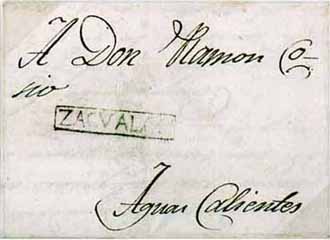 A Don Ramon Co-
sio
ZACUAL
Aguas Calientes